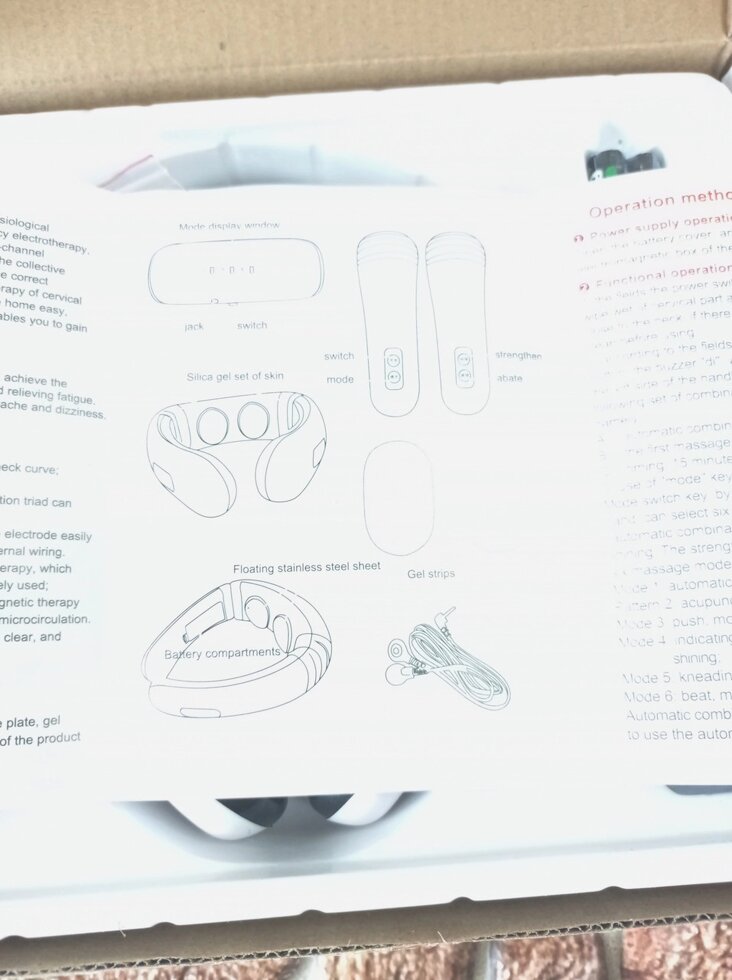 siological
cy electrotherapy,
-channel
he collective
e correct
rapy of cervical
home easy,
ables you to gain
achieve the
d relieving fatigue.
ache and dizziness.
eck curve;
tion triad can
electrode easily
ernal wiring.
erapy, which
ely used;
gnetic therapy
microcirculation.
clear, and
e plate, gel
of the product
Mode display window
jack switch
switch
mode
strengthen
abate
Silica gel set of skin
Floating stainless steel sheet
Gel strips
Battery compartments
Operation metho
Power supply operati
battery cover, an
box of the
Functional operation
the power swi
cervical part a
neck. If there
using.
to the fields
the buzzer "di".
of the hand
set of combin
automatic combin
first massage
15 minute
of "mode" key
Mode switch key, by
and can select six
automatic combina
The streng
massage mode
Mode 1: automatic
Pattern 2: acupun
Mode 3: push, mo
Mode 4: indicating
shining;
Mode 5: kneadin
Mode 6: beat, m
Automatic comb
to use the autor